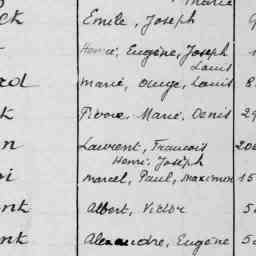 Marie
ck Emile, Joseph
Henri, Eugène, Joseph
Louis
rd Marie, Ouige, Louis 8
k Pierre, Marie, Denis 29
n Laurent, Francois 20
Henri, Joseph
oi Marcel, Paul, Maximin 15
ont Albert, Victor 5
ont Alexandre, Eugène 5